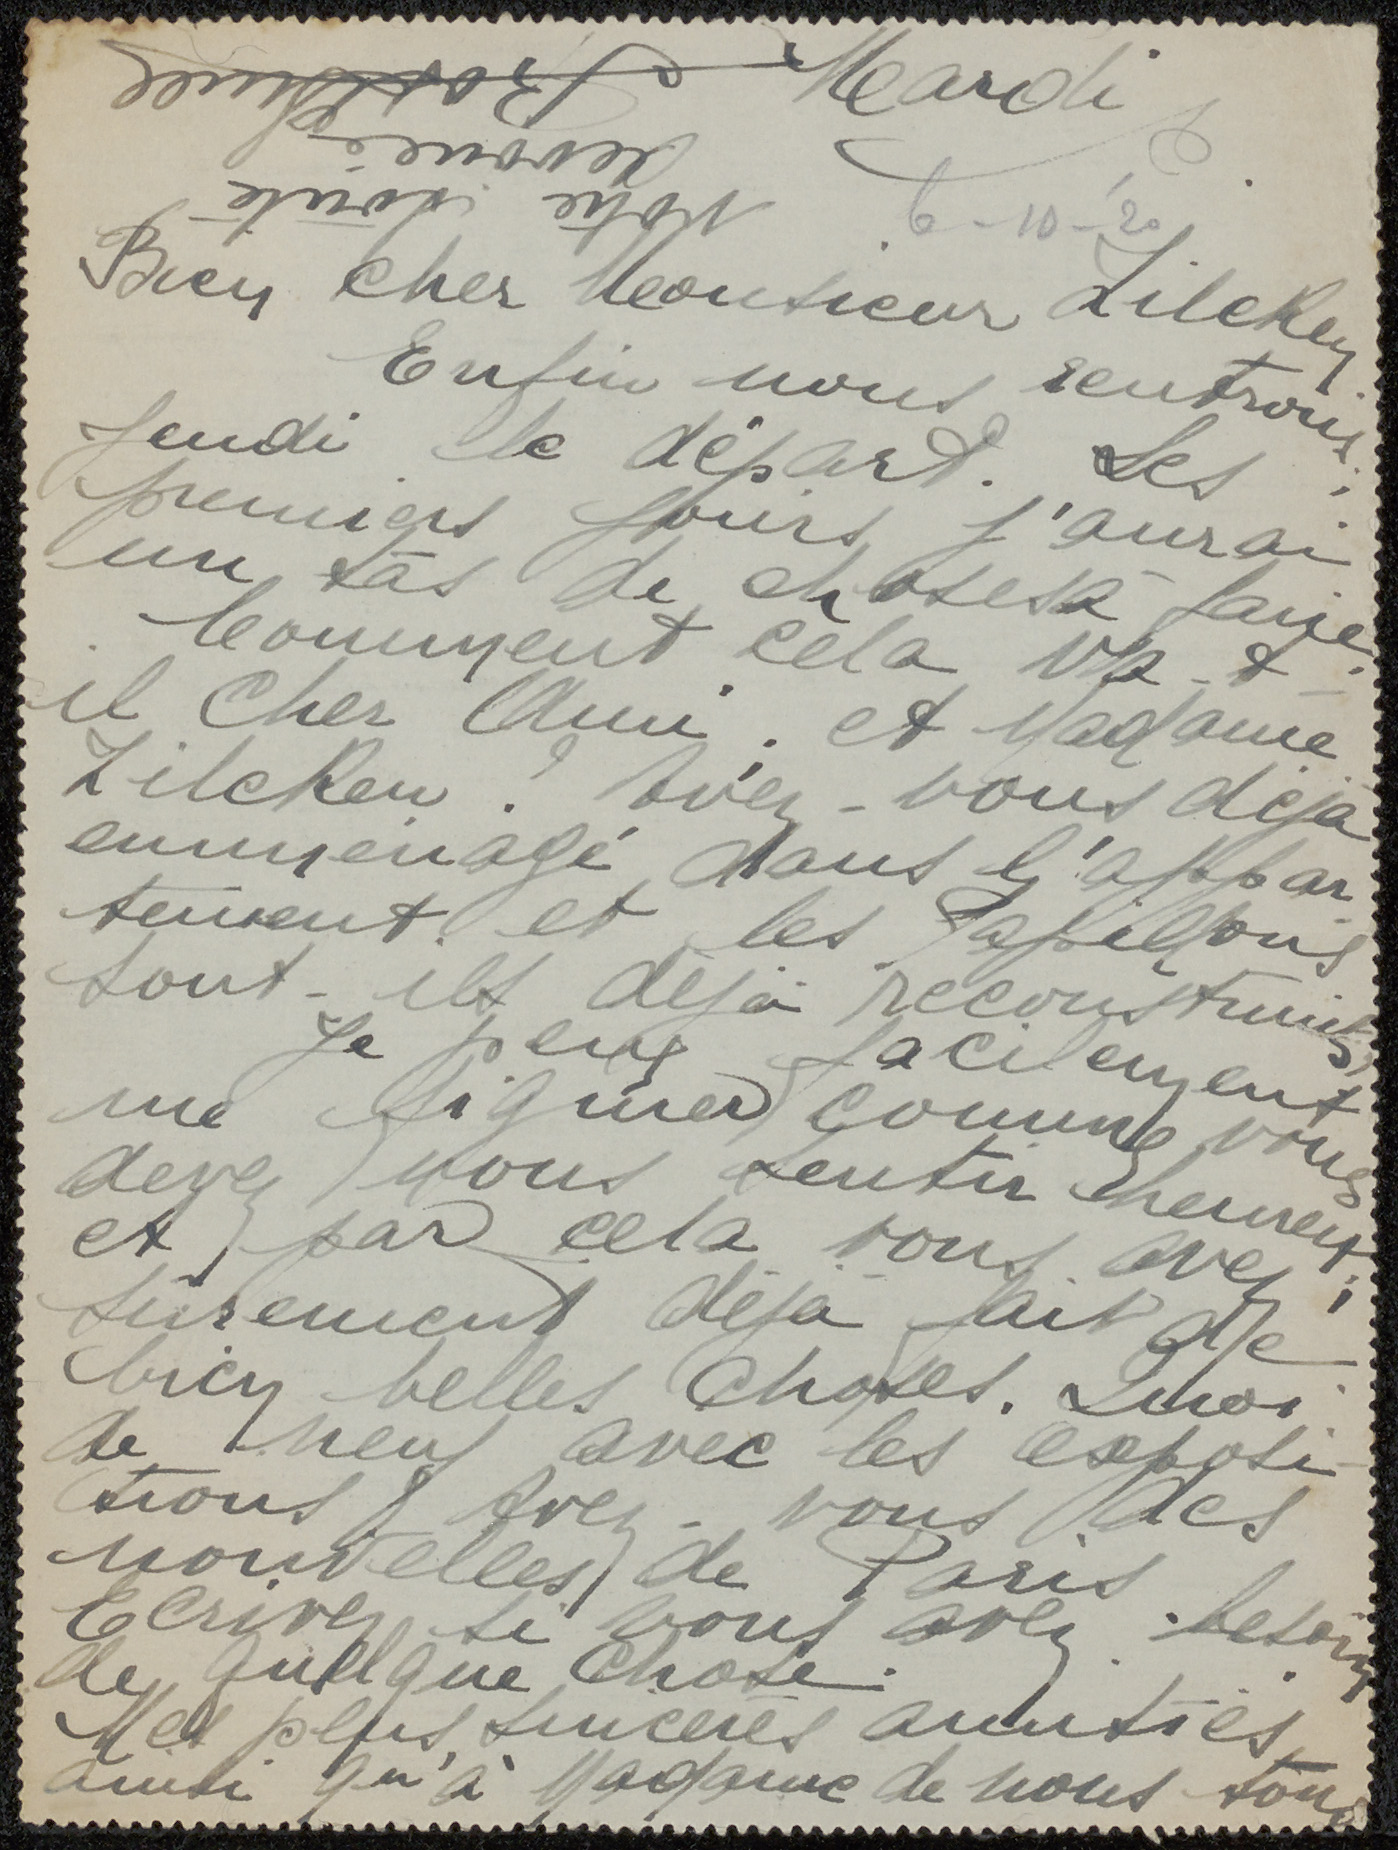 Mardi
6-10-'20
Bien cher Monsieur Zilcken
Enfin nous rentrons;
Jeudi le départ. Les
premiers jours j'aurai
un tas de choses à faire.
Comment cela va-t-
il cher Ami, et Madame
Zilcken? Avez-vous déjà
emménagé dans l'appar-
tement et les Papillons
sont-ils déjà reconstruits,
Je peux facilement
me figurer comme vous
devez vous sentir heureux;
et par cela vous avez
surement déjà fait de
bien belles choses. Quoi
de neuf avec les exposi-
tions? Avez-vous des
nouvelles de Paris.
Ecrivez si vous avez besoin
de quelque chose.
Mes plus sincères amitiés
ainsi qu'à Madame de nous tous
Votre
dévoué